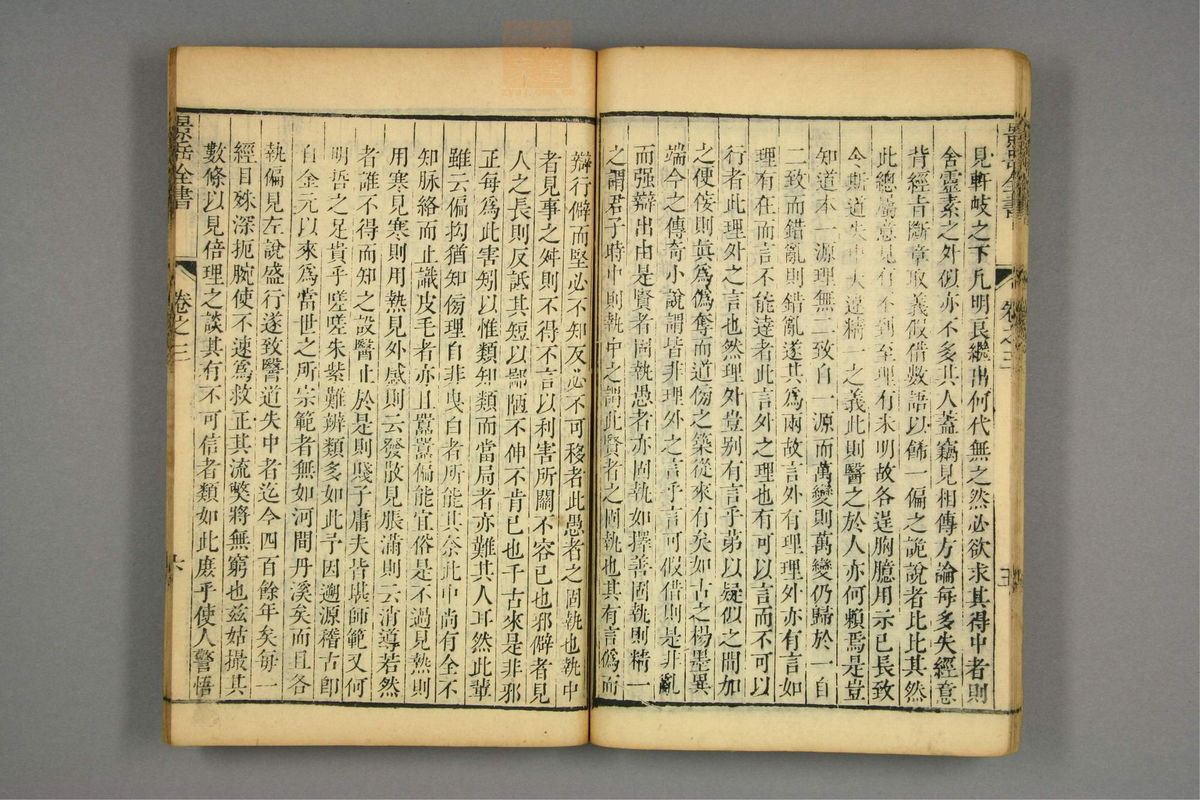 景岳全書
卷之三
五
見軒岐之下凡明良繼出何代無之然必欲求其得中者則
舍靈素之外似亦不多其人蓋竊見相傳方論每多失經意
背經旨斷章取義假借數語以飾一偏之詭說者比比其然
此總屬意見有不到至理有未明故各逞胸臆用示己長致
令斯道失中大違精一之義此則醫之於人亦何賴焉是豈
知道本一源理無二致自一源而萬變則萬變仍歸於一自
二致而錯亂則錯亂遂其為兩故言外有理理外亦有言如
理有在而言不能達者此言外之理也有可以言而不可以
行者此理外之言也然理外豈別有言乎第以疑似之間加
之便佞則真為偽奪而道傍之築從來有矣如古之楊墨異
端今之傳奇小說謂皆非理外之言乎言可假借則是非亂
而强辯出由是賢者固執愚者亦固執如擇善固執則精一
之謂君子時中則執中之謂此賢者之固執也其有言偽而
辯行僻而堅必不知反必不可移者此愚者之固執也執中
者見事之舛則不得不言以利害所關不容已也邪僻者見
人之長則反詆其短以鄙陋不伸不肯已也千古來是非邪
正每為此害矧以惟類知類而當局者亦難其人耳然此輩
雖云偏拗猶知傍理自非曳白者所能其奈此中尚有全不
知脉絡而止識皮毛者亦且囂囂偏能宜俗是不過見熱則
用寒見寒則用熱見外感則云發散見脹滿則云消導若然
者誰不得而知之設醫止於是則賤子庸夫皆堪師範又何
明哲之足貴乎嗟嗟朱紫難辨類多如此予因遡源稽古即
自金元以來為當世之所宗範者無如河間丹溪矣而且各
執偏見左說盛行遂致醫道失中者迄今四百餘年矣每一
經目殊深扼腕使不速為救正其流弊將無窮也茲姑撮其
數條以見倍理之談其有不可信者類如此庶乎使人警悟
景岳全書
卷之三
六